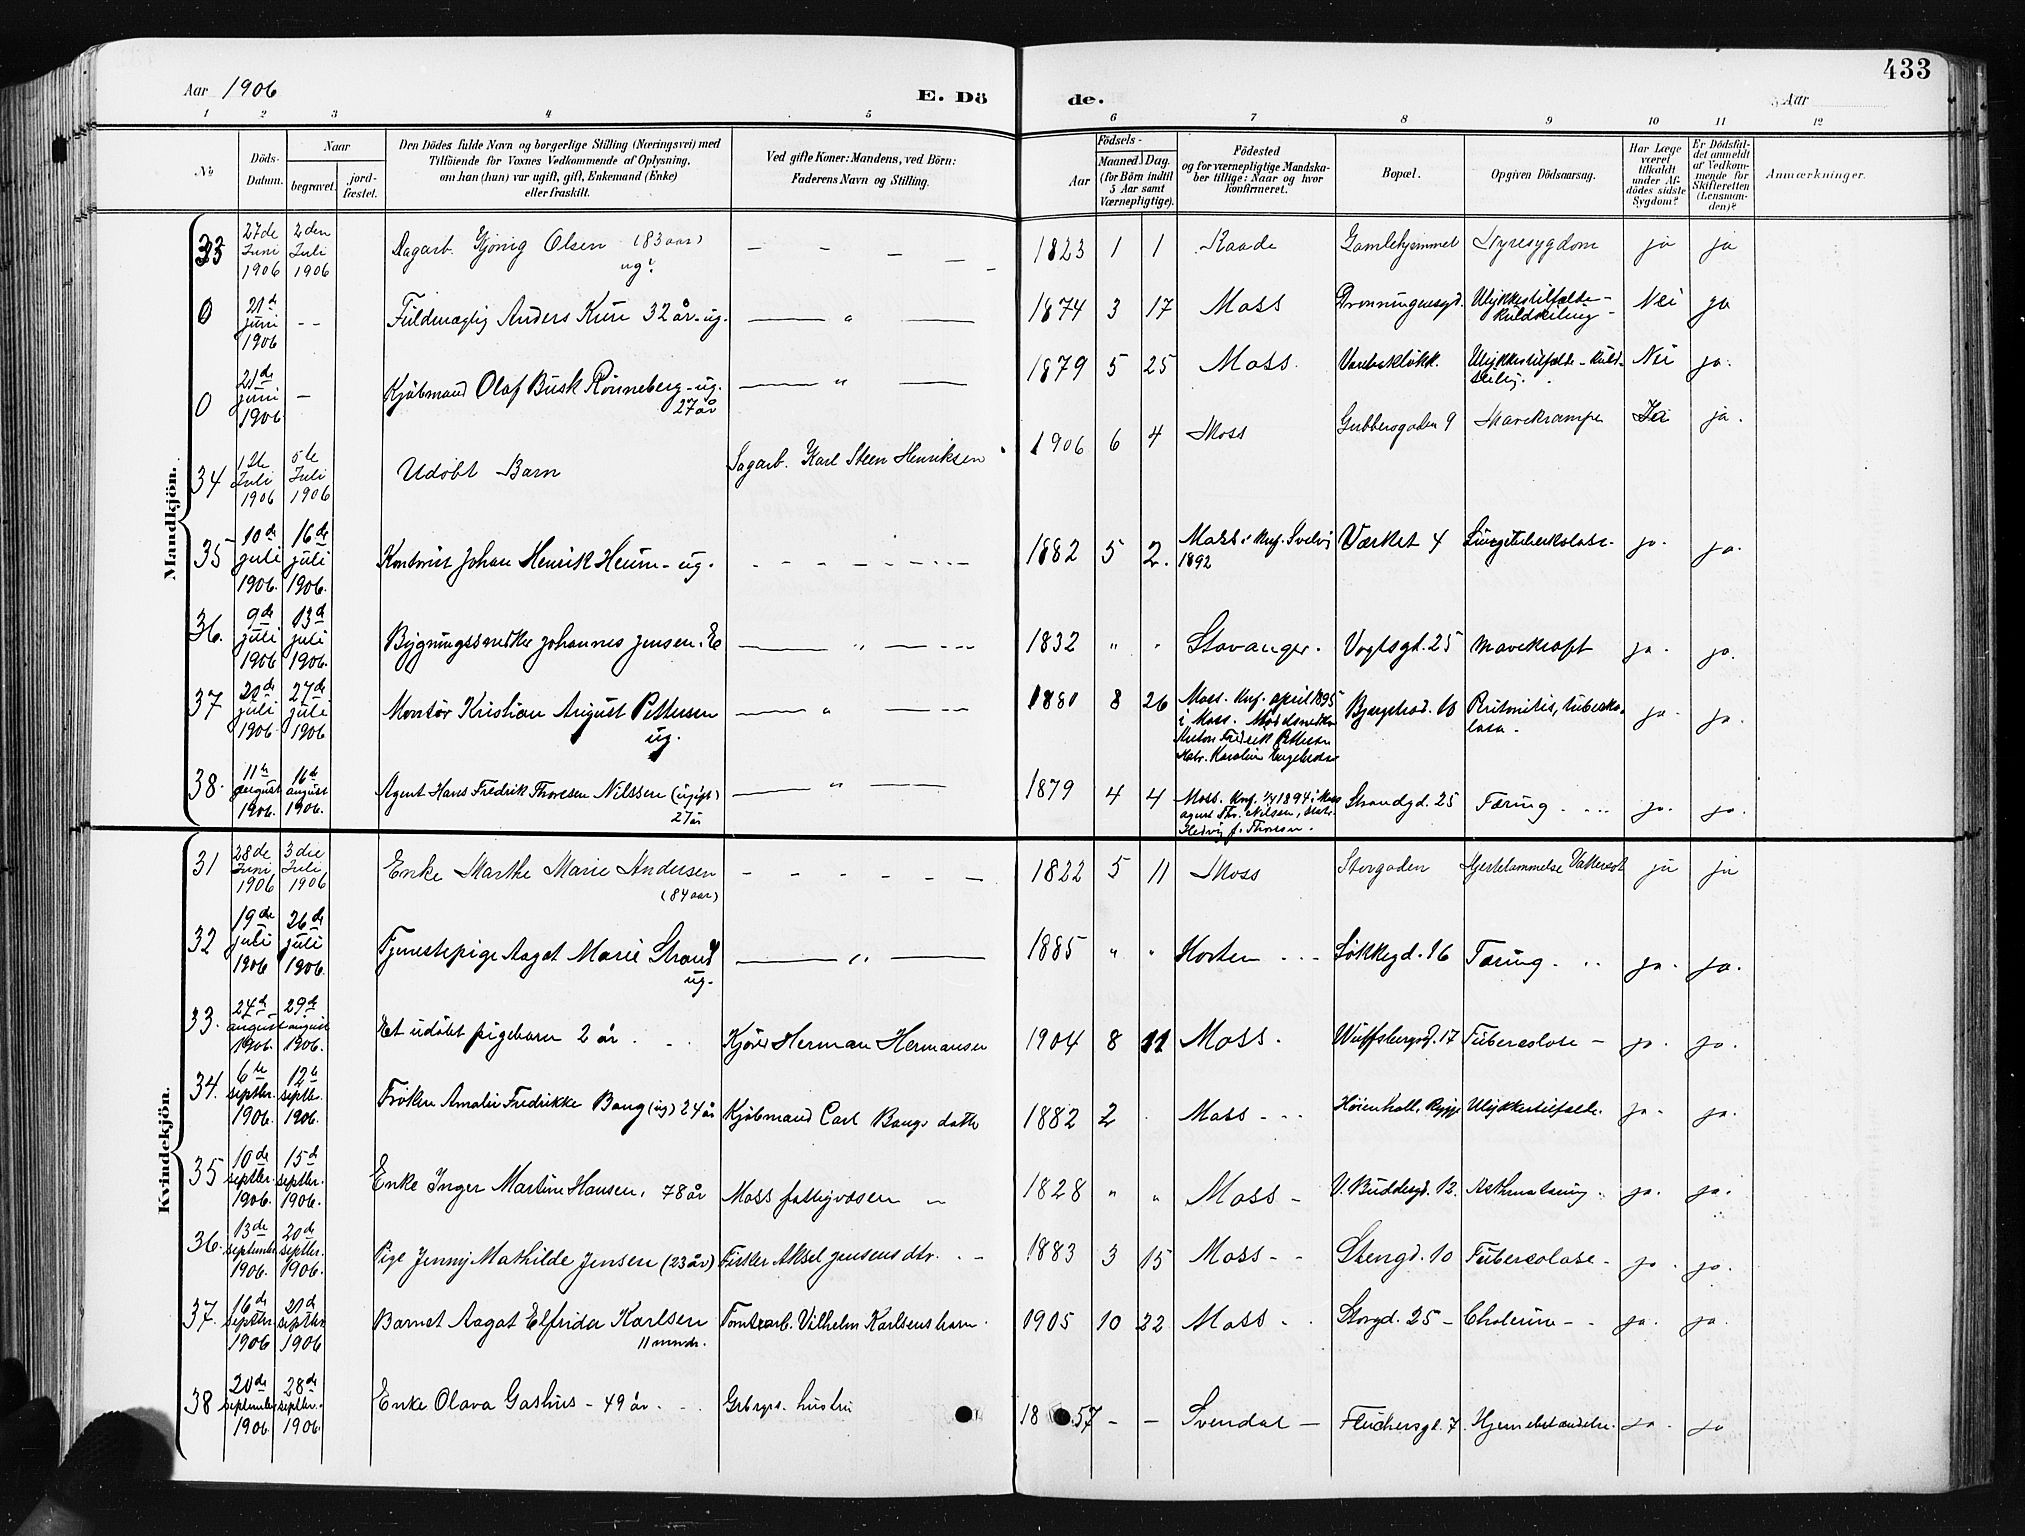 433
Aar 1906
E. Dö de.
Aar
1 2 3 4 5 6 7 8 9 10 11 12
№
Döds-Datum.
Naar
begravet.
jord-fæstet.
Den Dödes fulde Navn og borgerlige Stilling (Næringsvei) med
Tilföiende for Voxnes Vedkommende af Oplysning,
om han (hun) var ugift, gift, Enkemand (Enke)
eller fraskilt.
Ved gifte Koner: Mandens, ved Börn:
Faderens Navn og Stilling.
Födsels-
Aar
Maaned. Dag.
(for Börn indtil
5 Aar samt
Værnepligtige).
Födested
og for værnepligtige Mandska-
ber tillige: Naar og hvor
konfirmeret.
Bopæl.
Opgiven Dödsaarsag.
Har Læge
været
tilkaldt
under Af-
dödes sidste
Sygdom?
Er Dödsfal-
det anmeldt
af Vedkom-
mende for
Skifteretten
(Lensman-
den)?
Anmærkninger.
Mandkjön.
33 27de Juni 1906 2den Juli 1906 Dagarb. Gjönig Olsen (83 aar) ug. 1823 1 1 Raade Gamlehjemmet Nyresygdom ja ja
0 21d juni 1906 -- Fuldmægtig Anders Kure 32 år - ug. 1874 3 17 Moss Dronningensgd. Ulykkestilfælde - Kuldseiling - Nei ja
0 21de juni 1906 - Kjöbmand Olaf Busk Rönneberg - ug. 27 år 1879 5 25 Moss. Ulykkestilfælde - Kuld-seiling. Nei ja.
34 12te Juli 1906 5te Juli 1906 Udöbt Barn Sagarb. Karl Steen Henriksen 1906 6 4 Moss Gubbersgaden 9 Mavekrampe Ja ja.
35 10de juli 1906. 16de juli 1906. Kontorist Johan Henrik Heum - ug. 1882 5 2. Moss. Knf. Svelvig 1892 Værket 4 Lungetuberkolose - ja. ja.
36. 9de juli 1906 13d juli 1906. Bygningssnedker Johannes Jensen. E 1832 " " Stavanger. Vogtsgd. 25 Mavekræft ja. ja.
37 20de juli 1906. 27de juli 1906. Montör Kristian August Pettersen ug. 1880 8 26 Moss. Knf. april 1895 i Moss. Mödelsnedker Anton Fredrik Pettersen Peritonitis, tuberko-losa. ja. ja.
38. 11te august 1906. 16de august 1906. Agent Hans Fredrik Thoresen Nilssen (ugift) 27 år 1879 4 4 Moss. Knf. 1894 i Moss agent Thr. Nilsen, Hedvig f. Thoresen. Strandgd. 25 Tæring. ja. ja.
Kvindekjön.
31 28de Juni 1906 3die Juli 1906 Enke Marthe Marie Andersen (84 aar) 1822 5 11 Moss Storgaden Hjertelammelse Vattersot ja ja
32 19de juli 1906 26de juli 1906. Tjenestepige Aagot Marie Strand ug. 1885 " " Horten Lökkegd. 16 Tæring. ja. ja.
33. 24de august 1906. 29de august 1906. Et udöbt pigebarn 2 år Herman Hermansen 1904 8 11 Moss. 17 Tuberculose - ja. ja.
34. 6te septbr. 1906. 12te septbr. 1906. Fröken Amalie Fredrikke Bang (ug) 24 år Kjöbmand Carl Bangs datter 1882 2 Moss Höienhall, Rygge Ulykkestilfælde. ja. ja.
35 10de septbr. 1906. 15de septbr. 1906. Enke Inger Martine Hansen, 78 år Moss fattigvæsen 1828 " " Moss - V. Buddesgd. 12. Asthma ja. ja.
36. 13de september 1906. 20de septbr. 1906. Pige Jenny Mathilde Jensen (23 år) Fisker Aksel Jensens dtr. 1883 3 15 Moss Stengd. 10 Tuberculose - ja. ja.
37. 16de septbr. 1906 21de septbr. 1906 Barnet Aagot Elfrida Karlsen 11 mndr. Tomtearb. Vilhelm Karlsens barn. 1905 10 22 Moss Storgd. 25 - Cholerine - ja. ja.
38 20de september 1906. 28de septbr. 1906. Enke Olava Gashus - 49 år hustru 1857 - - Svendal - 7. Hjernebetændelse. ja. ja